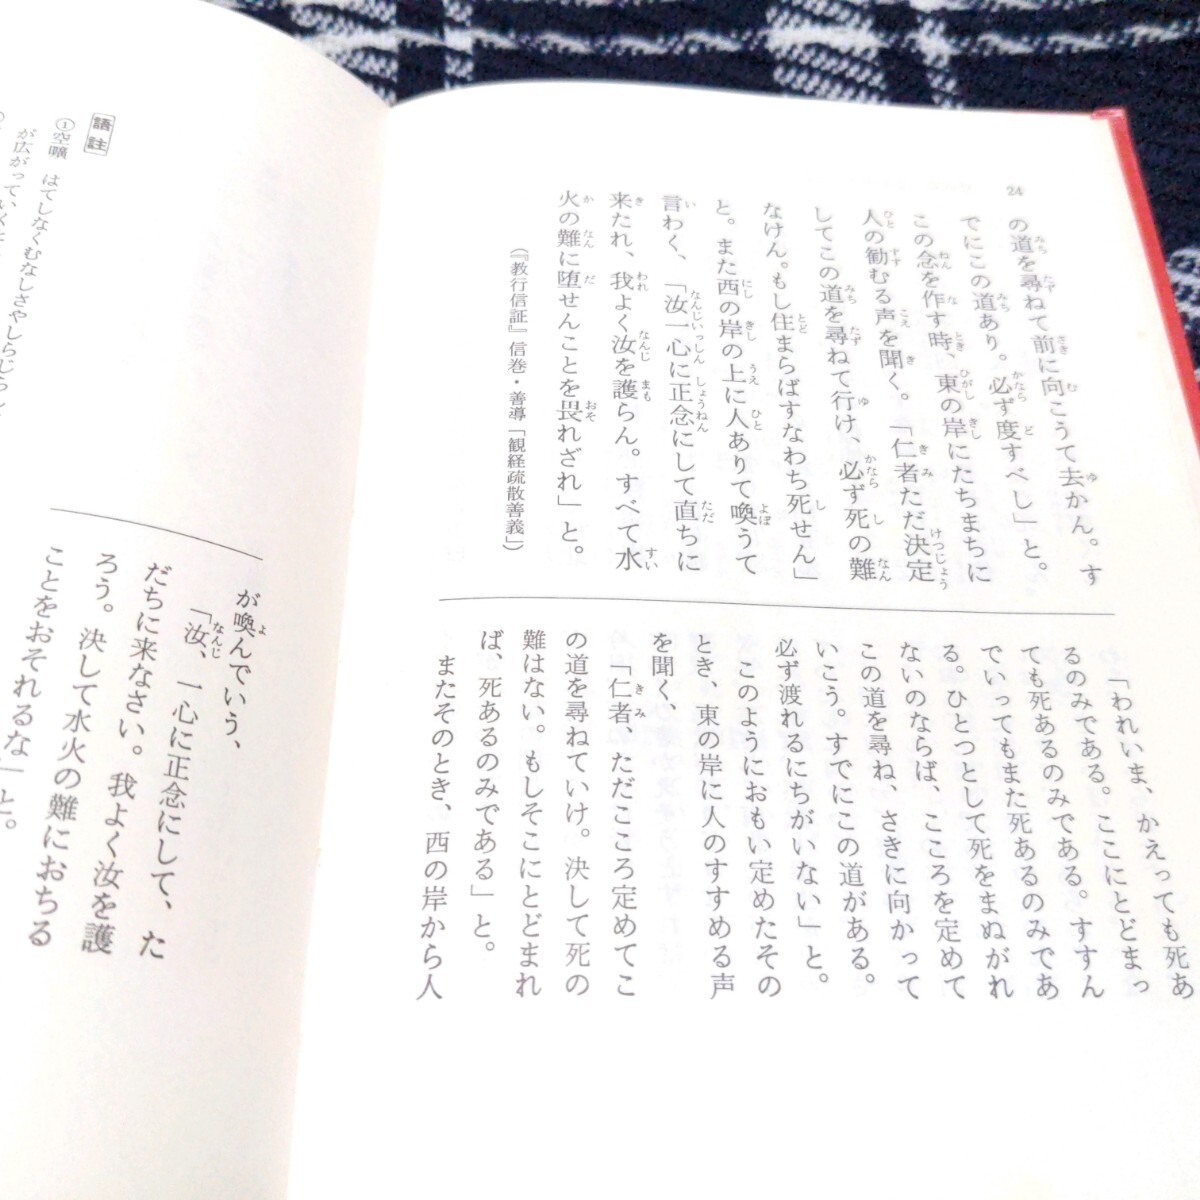 24
の道を尋ねて前に向こうて去かん。す
でにこの道あり。必ず度すべし」と。
この念を作す時、東の岸にたちまちに
人の勧むる声を聞く。「仁者ただ決定
してこの道を尋ねて行け、必ず死の難
なけん。もし住まらばすなわち死せん」
と。また西の岸の上に人ありて喚うて
言わく、「汝一心に正念にして直ちに
来たれ、我よく汝を護らん。すべて水
火の難に堕せんことを畏れざれ」と。
(『教行信証』信巻・善導「観経疏散善義」)
「われいま、かえっても死あ
るのみである。ここにとどまっ
ても死あるのみである。すすん
でいってもまた死あるのみであ
る。ひとつとして死をまぬがれ
ないのならば、こころを定めて
この道を尋ね、さきに向かって
いこう。すでにこの道がある。
必ず渡れるにちがいない」と。
このようにおもい定めたその
とき、東の岸に人のすすめる声
を聞く、
「仁者、ただこころ定めてこ
の道を尋ねていけ。決して死の
難はない。もしそこにとどまれ
ば、死あるのみである」と。
またそのとき、西の岸から人
が喚んでいう、
「汝、一心に正念にして、た
だちに来なさい。我よく汝を護
ろう。決して水火の難におちる
ことをおそれるな」と。
語註
①空曠 はてしなくむなしさやしらじらし
が広がって